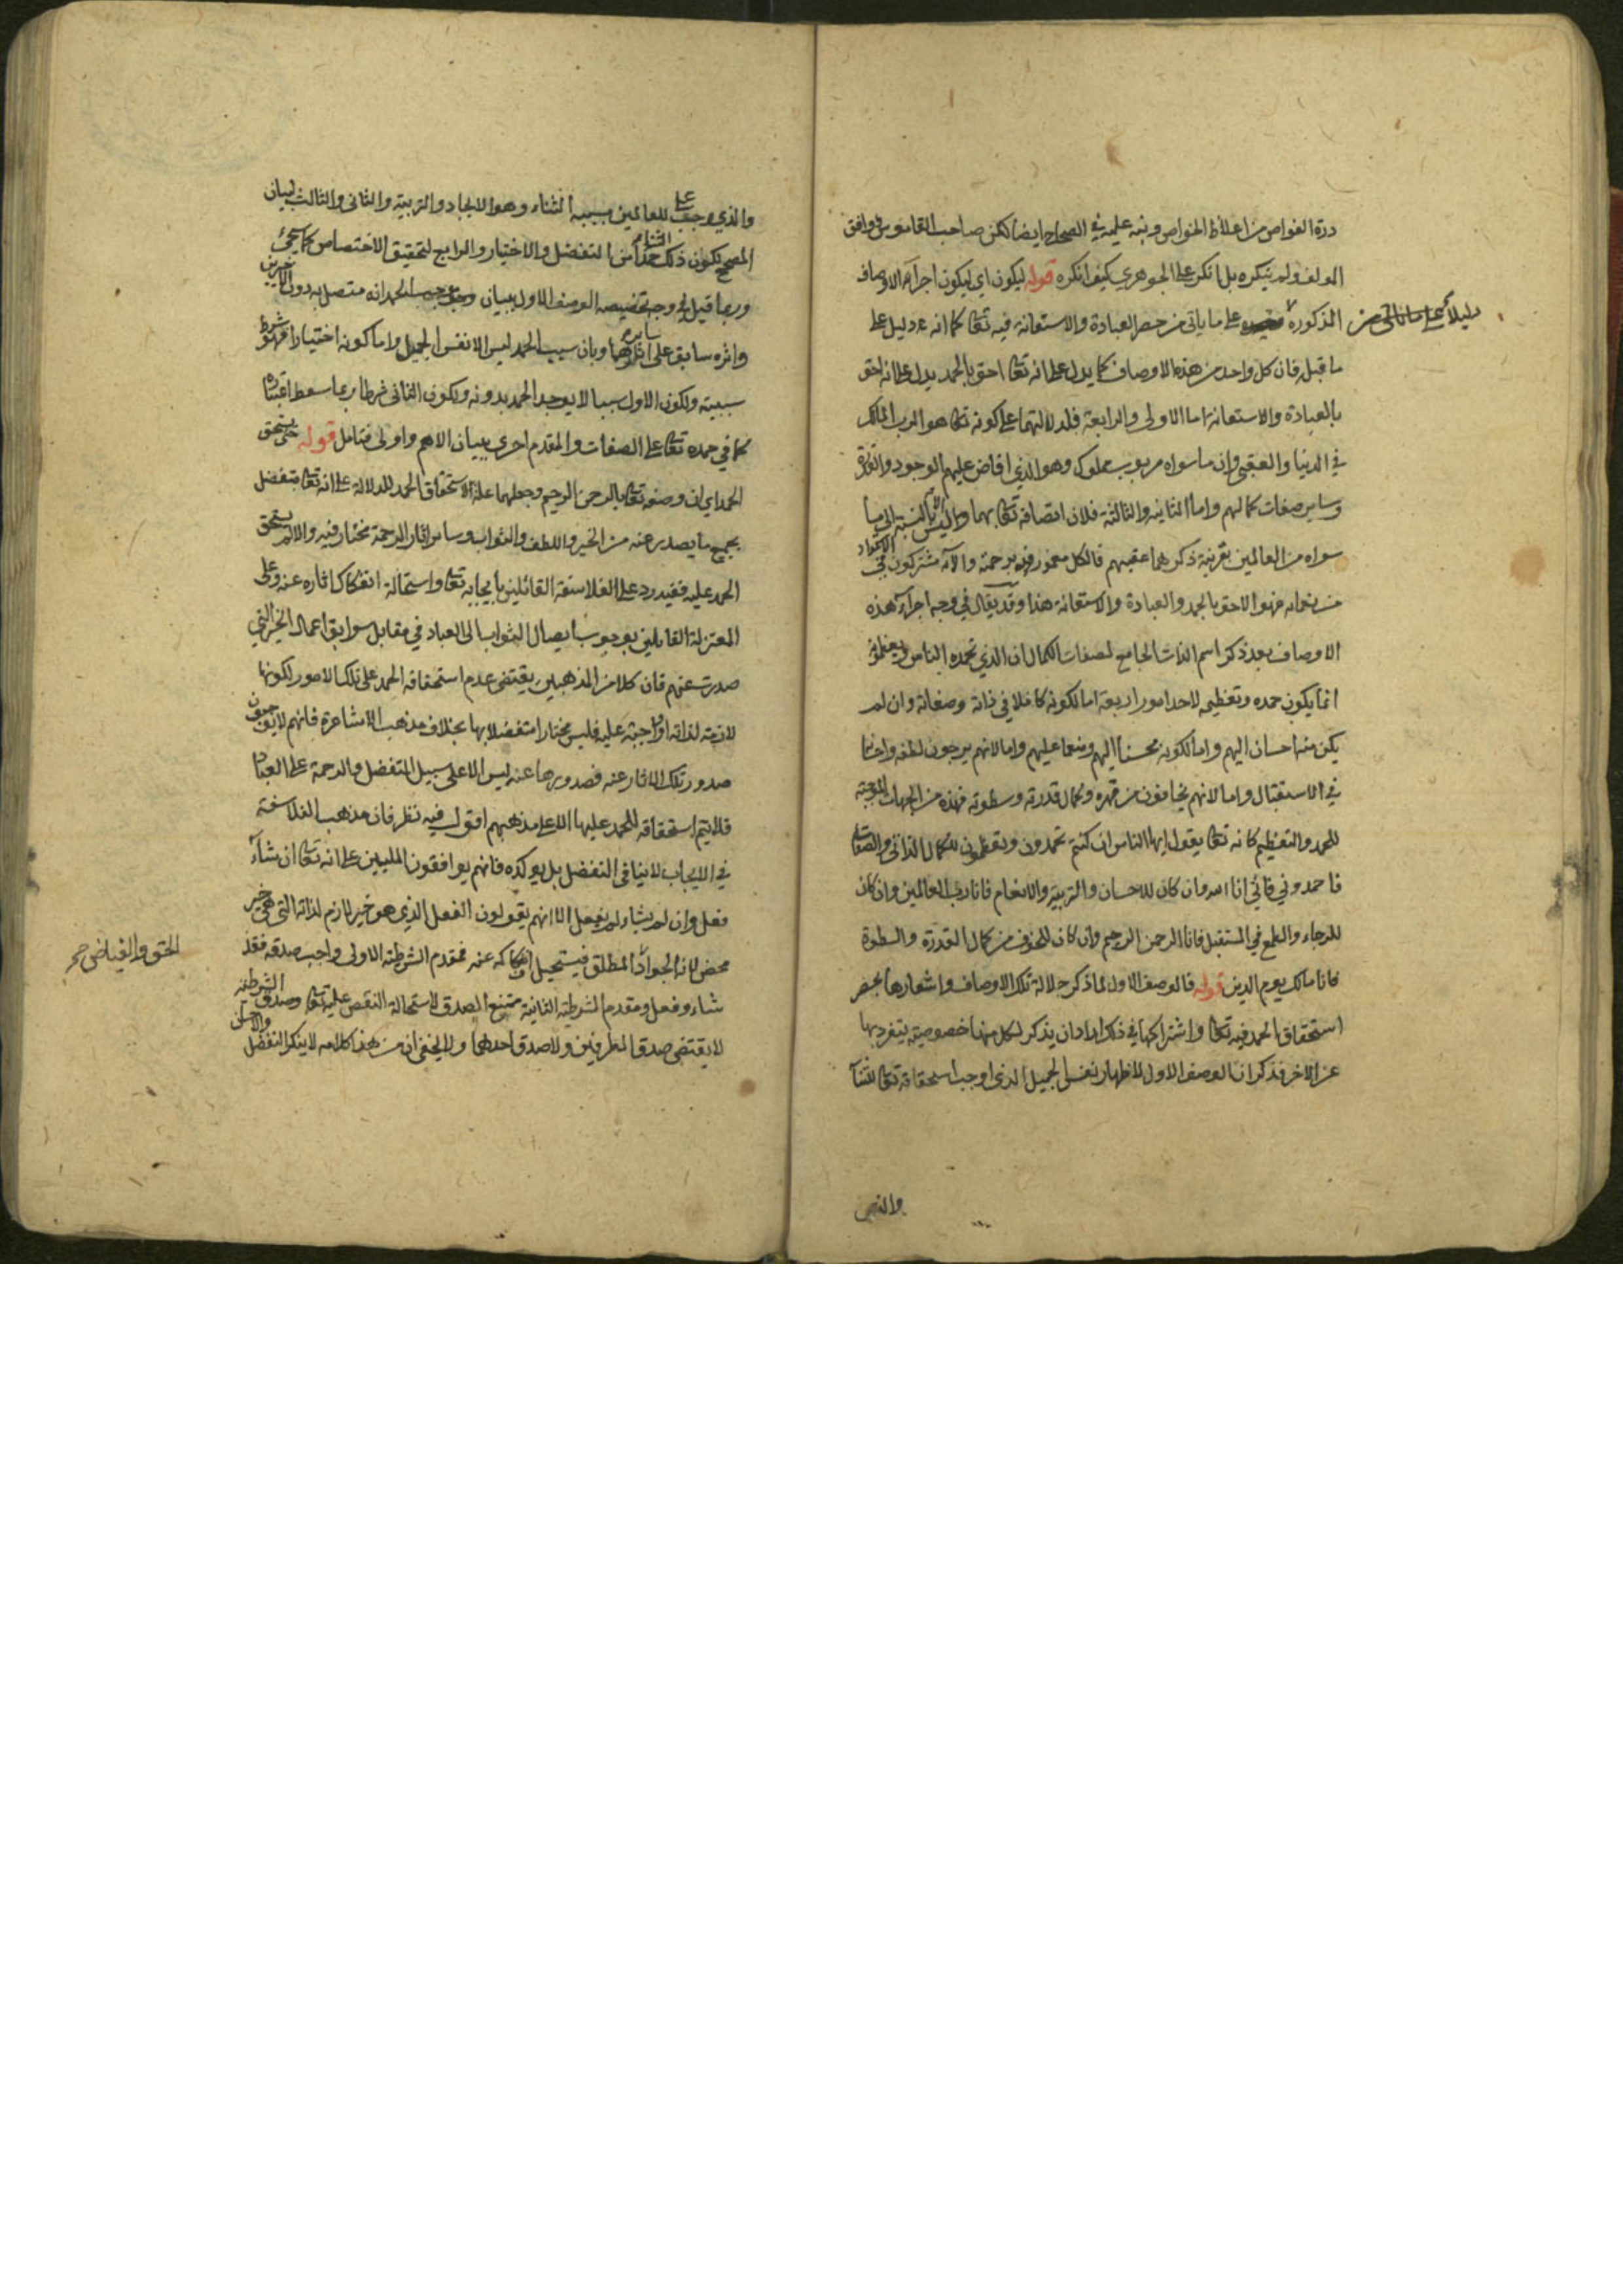 درة الغواص من اغلاظ الخواص ونبه عليه في الصحاح ايضا لكن صاحب القاموس وافق
المولف ولم ينكره بل انكر على الجوهري كيف انكره قوله ليكون اي ليكون اجرآء الاوصاف
المذكورة على ما ياتي من حصر العبادة والاستعانة فيه تعالى كما انه دليل على
دليلا على ما ياتي من
ما قبله فان كل واحد من هذه الاوصاف كما يدل على انه تعالى احق بالحمد يدل على انه احق
بالعبادة والاستعانة اما الاولى والرابعة فلدلالتهما على كونه تعالى هو الرب المالك
في الدنيا والعقبى وان ما سواه مربوب مملوك وهو الذي افاض عليهم الوجود والقدرة
وساير صفات كمالهم واما الثانية والثالثة فلان اتصافه تعالى بهما بالنسبة الى ما
سواه من العالمين بقرينة ذكرهما عقيبهم فالكل مغمورون برحمته والآئه مشتركون في
من نعمائه فهو الاحق بالحمد والعبادة والاستعانة هذا وقد يقال في وجه اجرآء هذه
الاوصاف بعد ذكر اسم الذات الجامع لصفات الكمال ان الذي تحمده الناس ويعظمونه
انما يكون حمده وتعظيمه لاحد امور اربعة اما لكونه كاملا في ذاته وصفاته وان لم
يكن منه احسان اليهم واما لكونه محسنا اليهم ومنعما عليهم واما لانهم يرجون لطفه واحسانه
في الاستقبال واما لانهم يخافون من قهره وكمال قدرته وسطوته فهذه من الجهات الموجبة
للحمد والتعظيم كانه تعالى يقول ايها الناس ان كنتم تحمدون وتعظمون للكمال الذاتي والصفاتي
فاحمدوني فاني انا الله وان كان للاحسان والتربية والانعام فانا رب العالمين وان كان
للرجاء والطمع في المستقبل فانا الرحمن الرحيم وان كان للخوف من كمال القدرة والسطوة
فانا مالك يوم الدين قوله فالوصف الاول لما ذكر جلالة تلك الاوصاف واشعارها بحصر
استحقاق الحمد فيه تعالى واشتراكها في ذلك اراد ان يذكر لكل منها خصوصية يتفرد بها
عن الاخر فذكر ان الوصف الاول لاظهار نفس الجميل الذي اوجب استحقاقه تعالى للثنآء
والذي
والذي وجب على للعالمين بسببه الثناء وهو الايجاد والتربية والثاني والثالث لبيان
المصحح لكون ذلك الثناء حمدا من التفضل والاختيار والرابع لتحقيق الاختصاص كما سيجئ
وربما قيل في وجه تخصيصه الوصف الاول ببيان موجب الحمد انه متصل به دون الآخرين
واثره سابق على ساير اثارهما وبان سبب الحمد ليس الا نفس الجميل واما كونه اختياريا فهو شرط
سببيته ولكون الاول سببا لا يوجد الحمد بدونه ولكون الثاني شرطا ربما سقط اعتباره
كما في حمده تعالى على الصفات والمقدم احرى ببيان الاهم واولى فتامل قوله حتى يستحق
الحمد اي ان وصفه تعالى بالرحمن الرحيم وجعلهما علة لاستحقاق الحمد للدلالة على انه تعالى متفضل
بجميع ما يصدر عنه من الخير واللطف والثواب وساير اثار الرحمة مختار فيه والا لم يستحق
الحمد عليه ففيه رد على الفلاسفة القائلين بايجابه تعالى واستحالة انفكاك اثاره عنه وعلى
المعتزلة القايلين بوجوب ايصال الثواب الى العباد في مقابل سوابق اعمال الخير التي
صدرت عنهم فان كلا من المذهبين يقتضي عدم استحقاقه الحمد على تلك الامور لكونها
لازمة لذاته او واجبة عليه فليس مختارا متفضلا بها بخلاف مذهب الاشاعرة فانهم لا يوجبون
صدور تلك الاثار عنه فصدورها عنه ليس الا على سبيل التفضل والرحمة على العباد
فلا يتم استحقاقه للحمد عليها الا على مذهبهم اقول فيه نظر فان مذهب الفلاسفة
في الايجاب لا ينافي التفضل بل يوكده فانهم يوافقون المليين على انه تعالى ان شآء
فعل وان لم يشاء لم يفعل الا انهم يقولون الفعل الذي هو خير لازم لذاته التي هي خير
محض لانه الجواد المطلق فيستحيل انفكاكه عنه فمقدم الشرطية الاولى واجب صدقه فقد
الحق والفياض صح
شاء وفعل ومقدم الشرطية الثانية ممتنع الصدق لاستحالة النقص عليه تعالى وصدق الشرطية
لا يقتضي صدق الطرفين ولا صدق احدهما ولا يخفى ان من هذا كلامه لا ينكر التفضل والاحسان